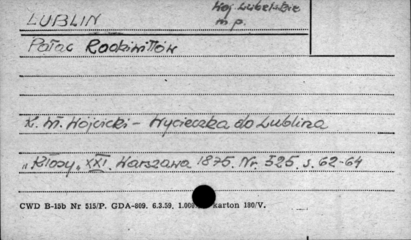 LUBLIN
Woj. Lubelskie
m p.
Pałac Radziwiłłów
K. Wł. Wójcicki - Wycieczka do Lublina
„Kłosy„ XXI. Warszawa 1875. Nr. 525 s. 62-64
CWD B-15b Nr 515/P. GDA-809. 6.2.59, 1.00 karton 180/V.